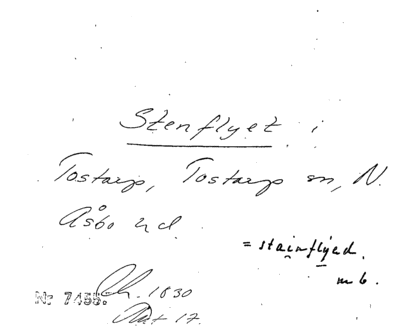 Stenflyet i
Tostarp, Tostarp sn, N.
Åsbo hd.
= stainflyed.
m b.
Nr 7455. Ch. 1830
Akt 17.